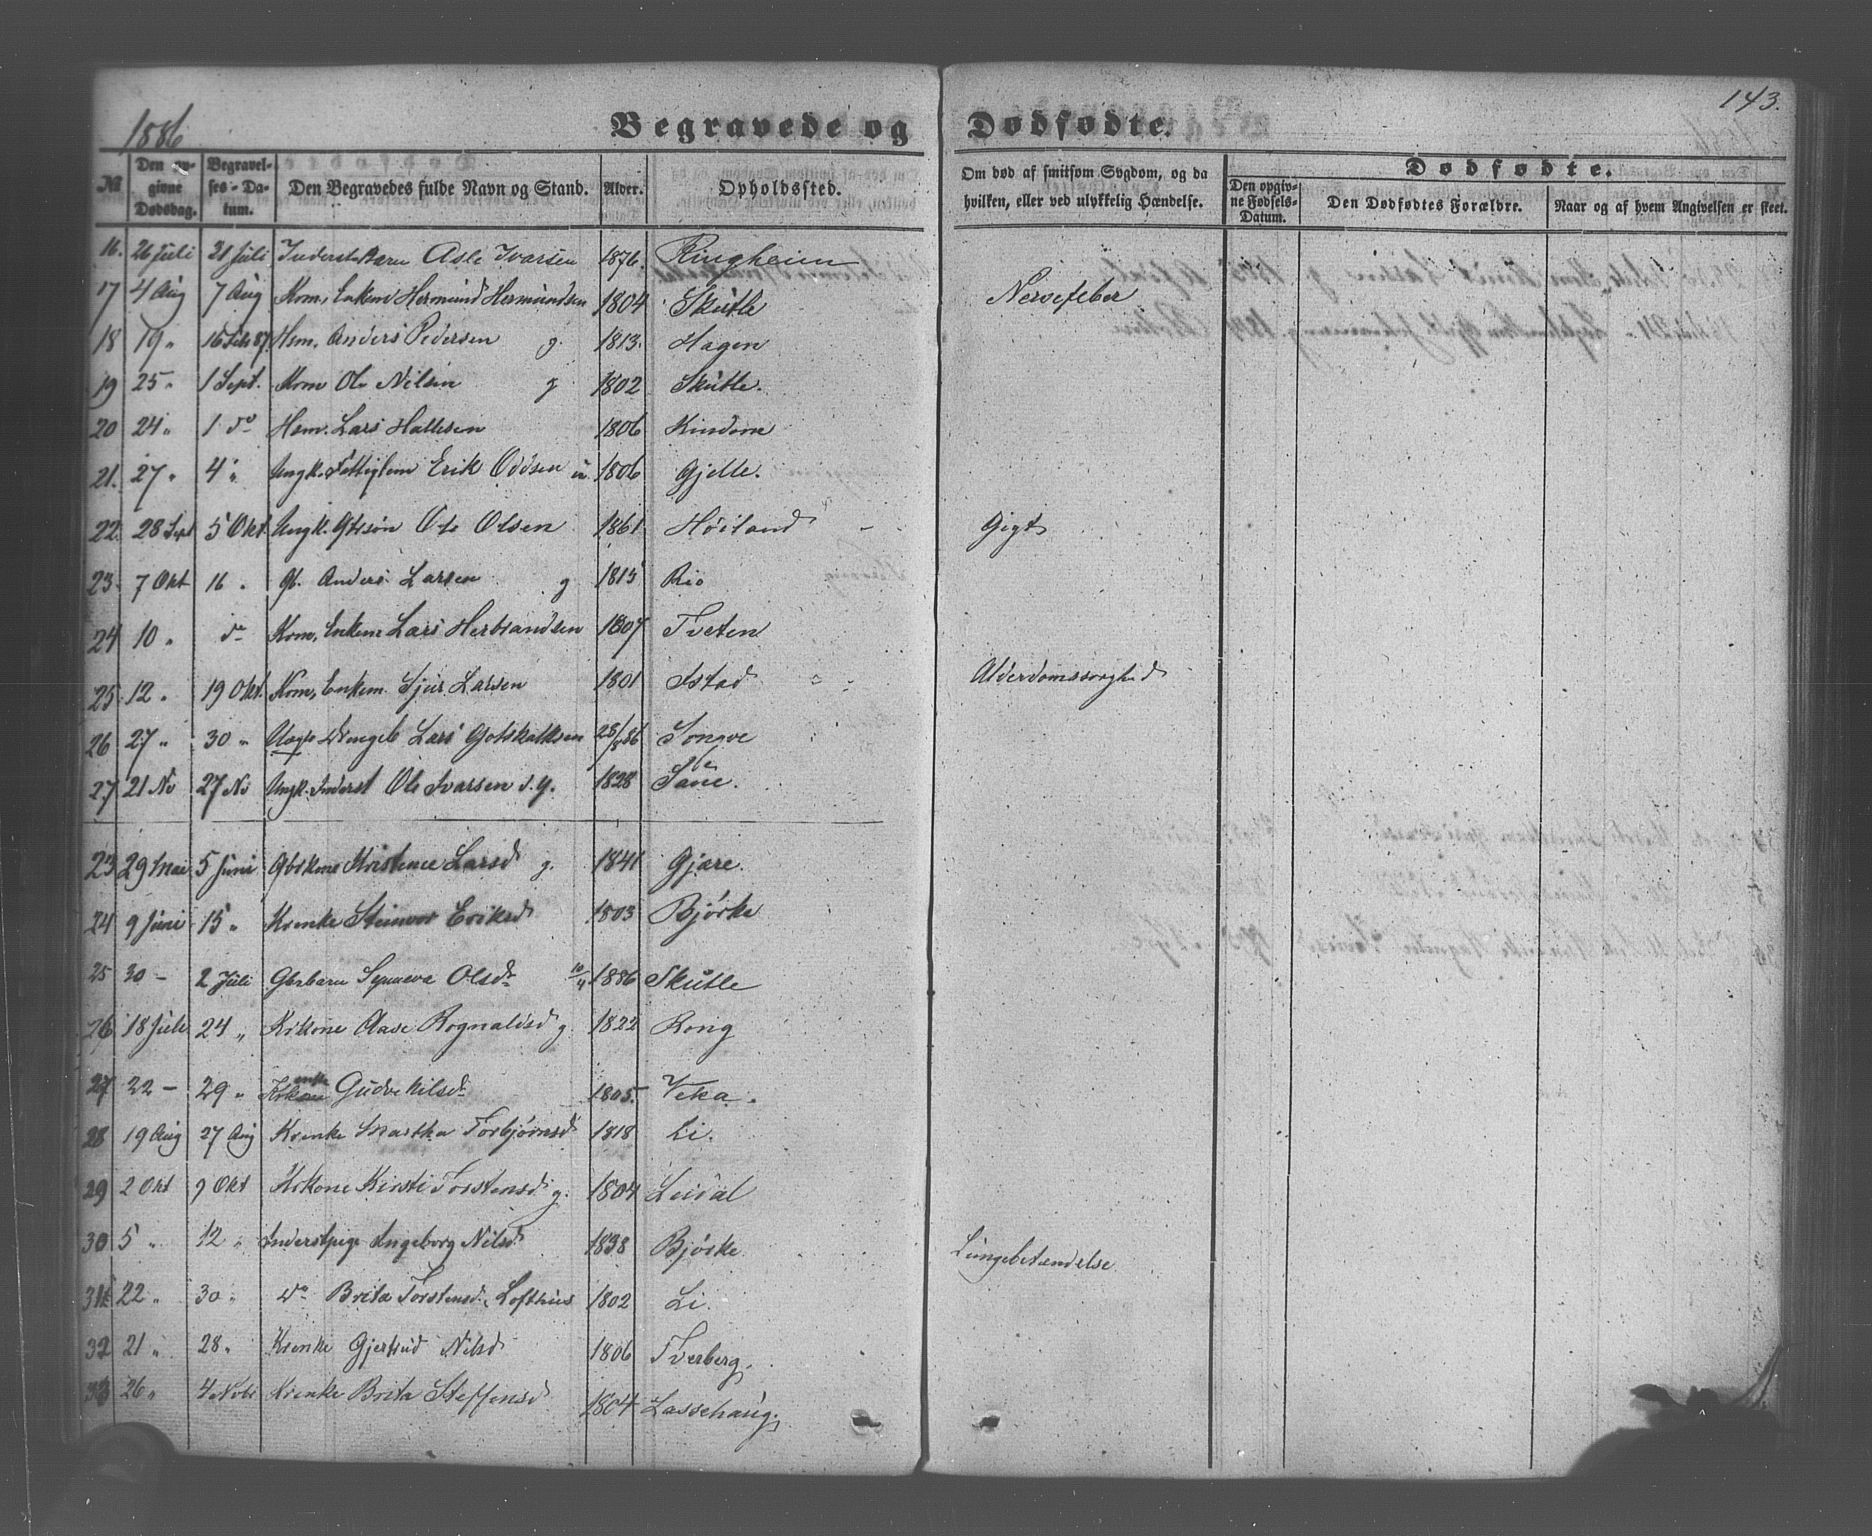 1886 Begravede og Dødfødte. 143.
№ Den opgivne Dødsdag. Begravelses-Datum. Den Begravedes fulde Navn og Stand. Alder. Opholdssted. Om død af smitsom Sygdom, og da hvilken, eller ved ulykkelig Hændelse. Dødfødte. Den opgivne Fødsels-Datum. Den Dødfødtes Forældre. Naar og af hvem Angivelsen er skeet.
16. 26 Juli 31 Juli Inderstbarn Asle Ivarsen 1876. Ringheim
17 4 Aug 7 Aug Kom, Enkem Hermund Hermundsen 1804 Skutle Nervefeber
18 19 " 15 Feb 87. Hsm. Anders Pedersen g. 1813. Hagen
19 25 " 1 Sept. Kom Ole Nilsen g 1802 Skutle.
20 24 " 1 do Hsm. Lars Hallesen 1806 Kindem
21. 27 " 4 " Ungk. Fattiglem Erik Oddsen u. 1806 Gjelle.
22. 28 Sept 5 Okt. Ungk. Gbrsøn Ole Olsen 1861. Høiland Gigt
23. 7 Okt 16 " Gb. Anders Larsen g 1815 Rio
24 10 " do Kom, Enkem Lars Herbrandsen 1807 Tveten
25 12 " 19 Okt. Kom, Enkem. Sjur Larsen 1801 Istad Alderdomssvaghed
26 27 " 30 " Lars Gotskalksen 28/8 86 Songve
27 21 Nv 27 Nv Ungk. Inderst Ole Ivarsen d.y. 1828 Save.
23 29 Mai 5 Juni Gbrkone Kristence Larsd g. 1841 Gjære.
24 9 Juni 15 " Krenke Steinvor Eriksd 1803 Bjørke
25 30 - 2 Juli Gbrbarn Synneva Olsdr 10/4 1886 Skutle
26 18 Juli 24 " Krkone Aase Rognaldsd g. 1822 Rong
27 22 - 29 " Krkone enke Gudve Nilsdr 1805. Veka.
28 19 Aug 27 Aug Krenke Martha Torbjørnsd 1818 Li.
29 2 Okt 9 Okt Krkone Kirsti Torstensd g. 1804 Leidal
30 5 " 12 " Inderstpige Ingeborg Nilsd 1838 Bjørke Lungebetændelse
31 22 " 30 " do Brita Torstensd. Lofthus 1802 Li.
32 21 " 28 " Krenke Gjertrud Nilsd 1806 Tverberg.
33 26 " 4 Novbr Krenke Brita Steffensd 1804 Lassehaug.